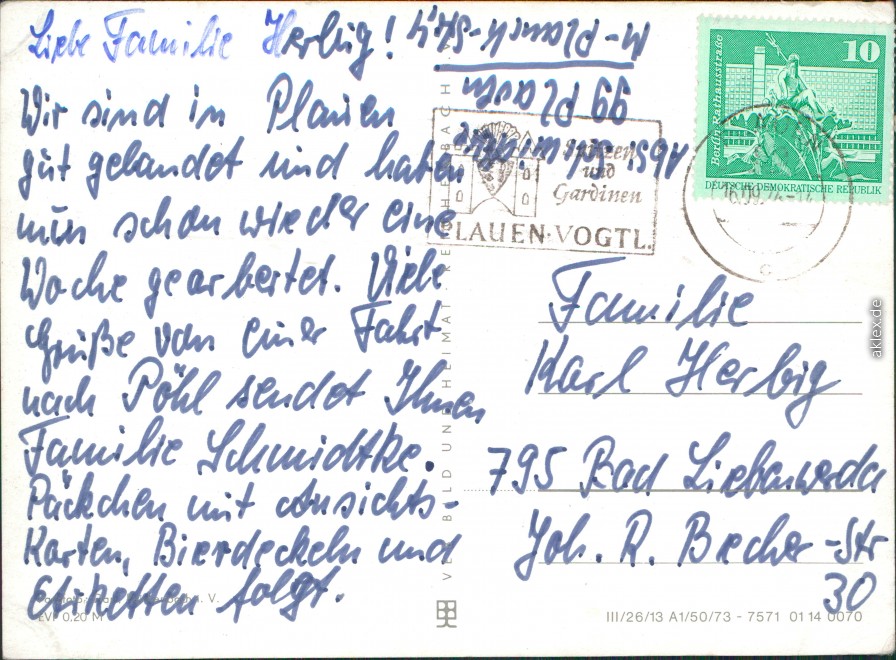 Liebe Familie Herbig!
Wir sind in Plauen
gut gelandet und haben
nun schon wieder eine
Woche gearbeitet. Viele
Grüße von einer Fahrt
nach Pöhl sendet Ihnen
Familie Schmidtke.
Päckchen mit Ansichts-
Karten, Bierdeckeln und
Etiketten folgt.
EVP 0,20 M
Abs.
99 Plauen
Spitzen
und
Gardinen
PLAUEN·VOGTL.
10
Berlin, Rathausstraße
DEUTSCHE DEMOKRATISCHE REPUBLIK
16.09.74
c
Familie
Karl Herbig
795 Bad Liebenwerda
Joh. R. Becher-Str
30
III/26/13 A1/50/73 - 7571 01 14 0070
VERLAG BILD UND HEIMAT REICHENBACH
aklex.de